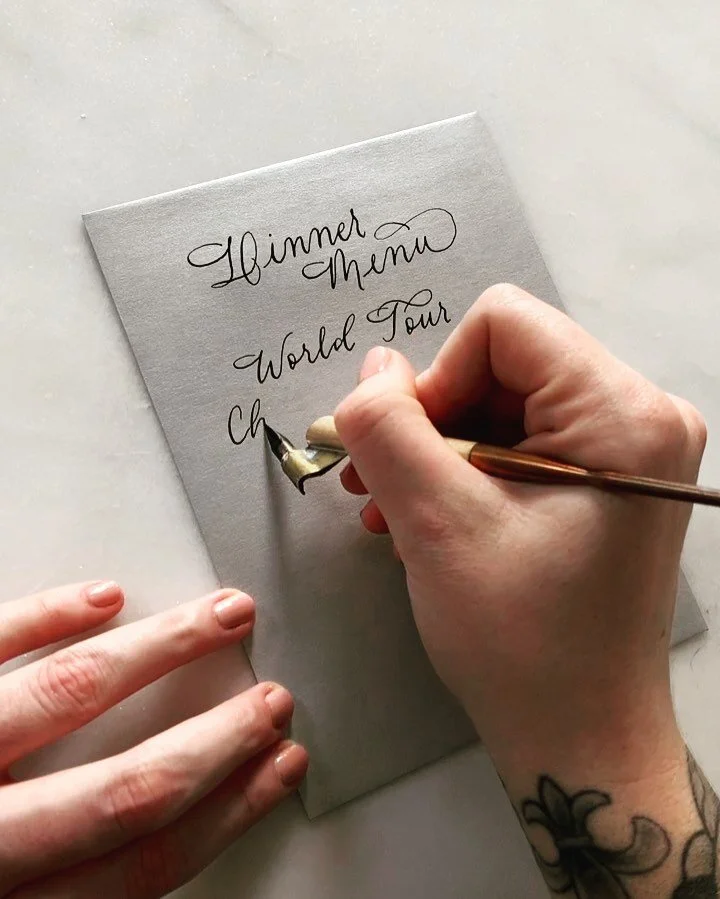 Dinner
Menu
World Tour
Ch